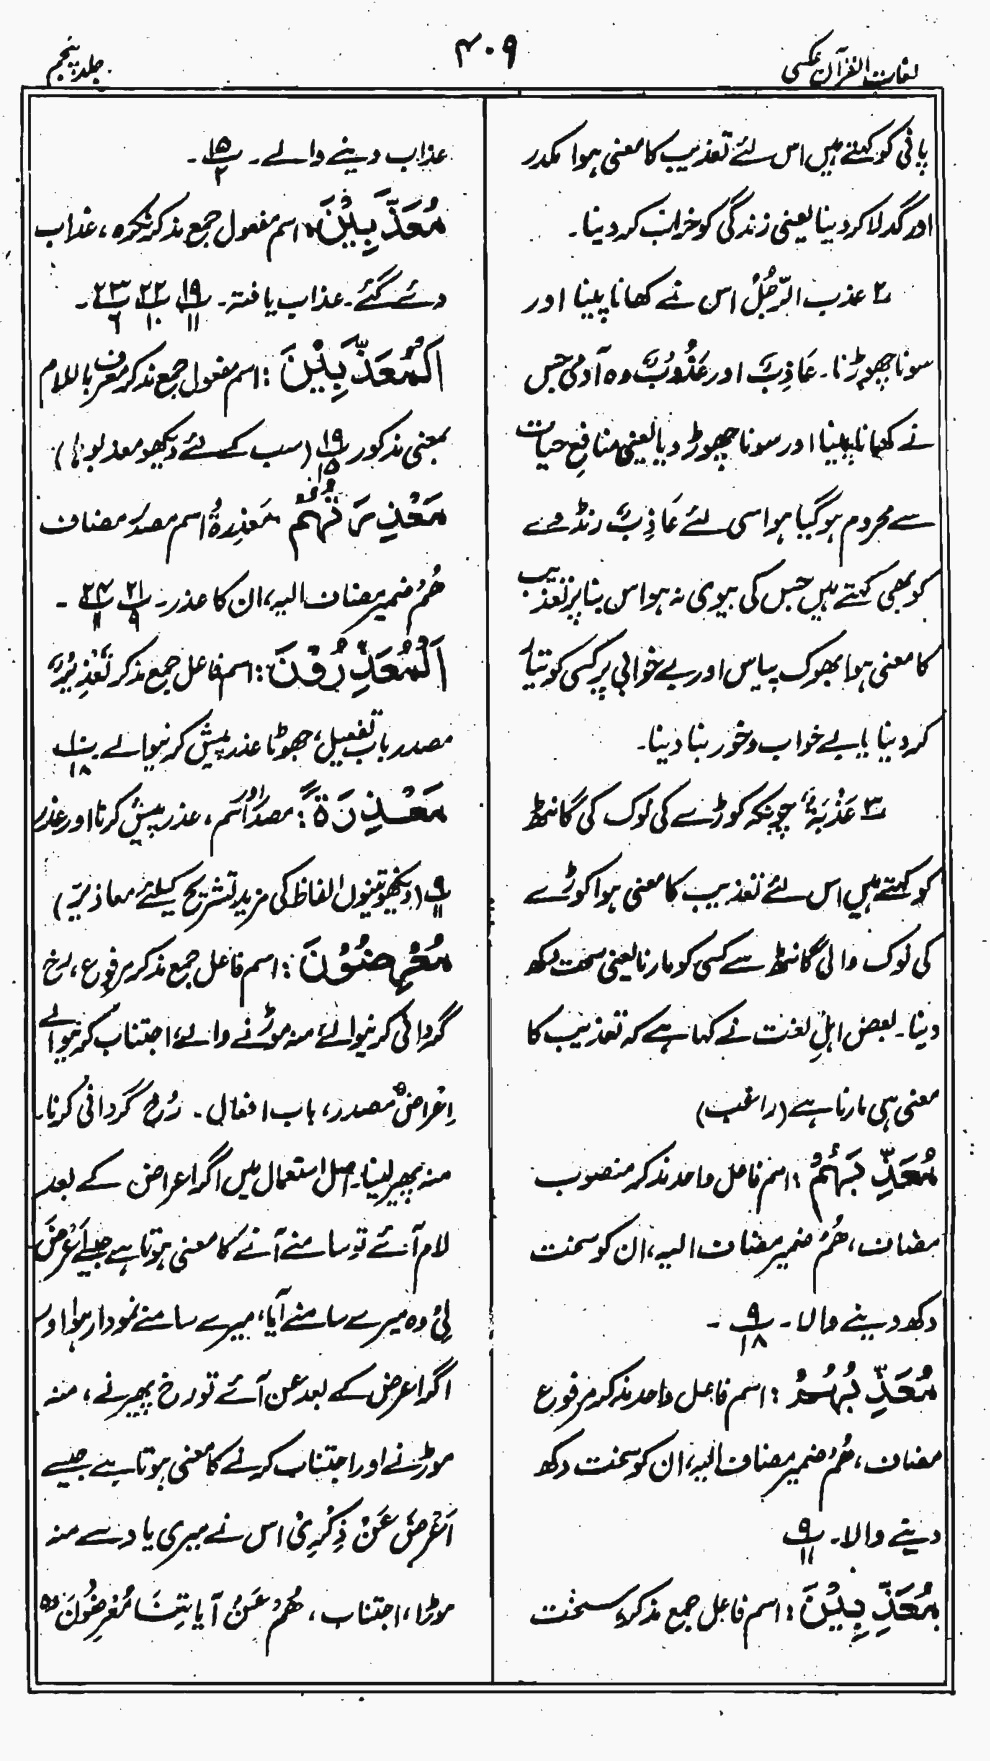 لغات القرآن عکسی
۴۰۹
جلد پنجم
پانی کو کہتے ہیں اس لئے تعذیب کا معنی ہوا مکدر
اور گدلا کردینا یعنی زندگی کو خراب کردینا۔
۲ عذب الرّجُلُ اس نے کھانا پینا اور
سونا چھوڑنا۔ عَاذِبٌ اور عَذُوبٌ وہ آدمی جس
نے کھانا پینا اور سونا چھوڑ دیا یعنی منافعِ حیات
سے محروم ہوگیا ہو اسی لئے عَاذِبٌ رنڈوے
کو بھی کہتے ہیں جس کی بیوی نہ ہو اس بنا پر تعذیب
کا معنی ہوا بھوک پیاس اور بے خوابی پر کسی کو تیار
کردینا یا بے خواب و خور بنا دینا۔
۳ عَذَبَۃٌ چونکہ کوڑے کی نوک کی گانٹھ
کو کہتے ہیں اس لئے تعذیب کا معنی ہوا کوڑے
کی نوک والی گانٹھ سے کسی کو مارنا یعنی سخت دکھ
دینا۔ بعض اہلِ لغت نے کہا ہے کہ تعذیب کا
معنی ہی مارنا ہے (راغب)
مُعَذِّبَہُمْ : اسم فاعل واحد مذکر منصوب
مضاف، ھُمْ ضمیر مضاف الیہ، ان کو سخت
دکھ دینے والا۔ پ۹/۱۸ ۔
مُعَذِّبُہُمْ : اسم فاعل واحد مذکر مرفوع
مضاف، ھُمْ ضمیر مضاف الیہ، ان کو سخت دکھ
دینے والا۔ پ۹/۱۱
مُعَذِّبِیْنَ : اسم فاعل جمع مذکر، سخت
عذاب دینے والے۔ پ۱۵/۲ ۔
مُعَذَّبِیْنَ : اسم مفعول جمع مذکر نکرہ، عذاب
دئے گئے۔ عذاب یافتہ۔ پ۱۹/۱۱ پ۲۲/۱۰ پ۲۳/۶ ۔
اَلْمُعَذَّبِیْنَ : اسم مفعول جمع مذکر معرف باللام
بمعنی مذکور پ۱۹/۱۵ (سب کے لئے دیکھو معذبوہا)
مَعْذِرَتُہُمْ مَعْذِرَۃُ اسم مصدر مضاف
ھُمْ ضمیر مضاف الیہ، ان کا عذر۔ پ۲۱/۹ پ۲۴/۱۱ ۔
اَلْمُعَذِّرُوْنَ : اسم فاعل جمع مذکر تَعْذِیْرٌ
مصدر باب تفعیل، جھوٹا عذر پیش کرنیوالے پ۱۰/۱۸
مَعْذِرَۃً : مصدر اور اسم، عذر پیش کرنا اور عذر
پ۹/۱۱ (دیکھو تینوں الفاظ کی مزید تشریح کیلئے معاذیر)
مُعْرِضُوْنَ : اسم فاعل جمع مذکر مرفوع، رخ
گردانی کرنیوالے، منہ موڑنے والے، اجتناب کرنیوالے
اِعْرَاضٌ مصدر، باب افعال۔ رُخ گردانی کرنا۔
منہ پھیر لینا۔ اصل استعمال میں اگر اعراض کے بعد
لام آئے تو سامنے آنے کا معنی ہوتا ہے جیسے اَعْرَضَ
لِیْ وہ میرے سامنے آیا، میرے سامنے نمودار ہوا اور
اگر اعرض کے بعد عن آئے تو رخ پھیرنے، منہ
موڑنے اور اجتناب کرنے کا معنی ہوتا ہے جیسے
اَعْرَضَ عَنْ ذِکْرِیْ اس نے میری یاد سے منہ
موڑا، اجتناب، ھُمْ عَنْ آیَاتِنَا مُعْرِضُوْنَ وہ